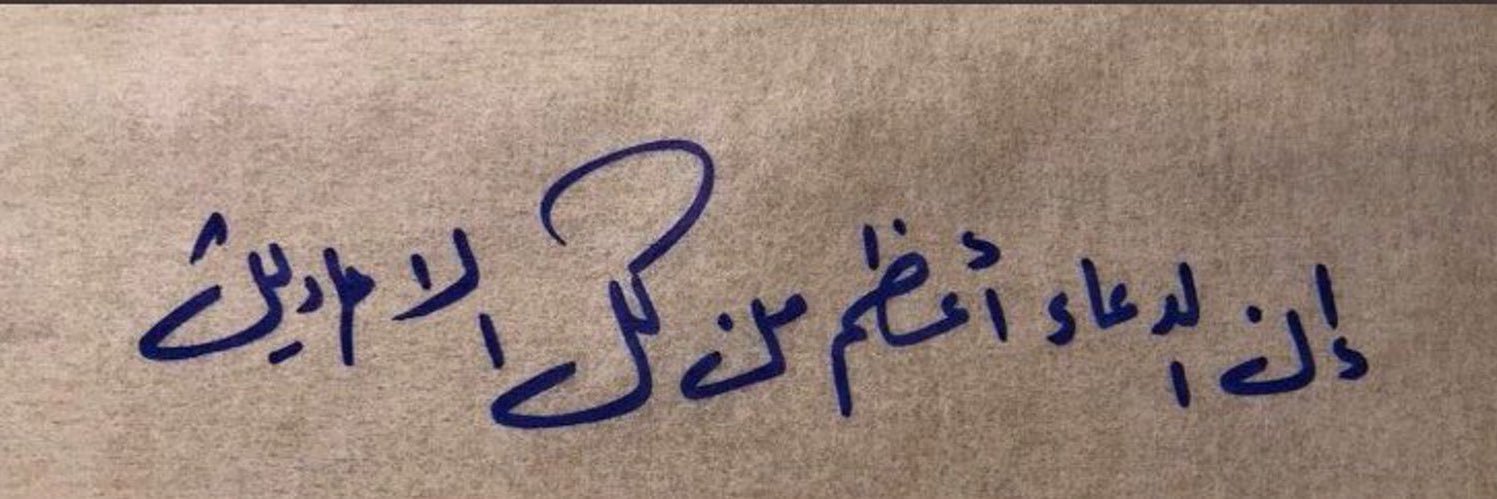 إن الدعاء أعظم من كل الاحاديث